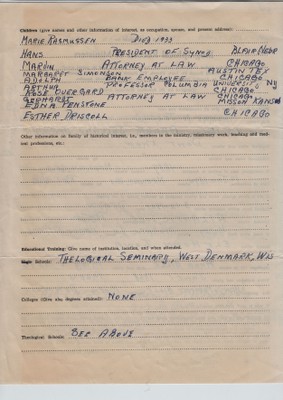 Children (give names and other information of interest, as occupation, spouse, and present address):
MARIE RASMUSSEN DIED 1933
HANS PRESIDENT OF SYNOD BLAIR NEBR
MARVIN ATTORNEY AT LAW CHICAGO
MARGARET SIMONSON AUSTIN TEX
ADOLPH BANK EMPLOYEE CHICAGO
ARTHUR PROFESSOR COLUMBIA UNIVERSITY NY
ROSE OVERGARD CHICAGO
GERHARDT ATTORNEY AT LAW CHICAGO
EDNA PENSTONE KANSAS
ESTHER DRISCOLL CHICAGO
Other information on family of historical interest, i.e., members in the ministry, missionary work, teaching and medical professions, etc.:
Educational Training: Give name of institution, location, and when attended.
Schools: THELOGICAL SEMINARY, WEST DENMARK, WIS
Colleges (Give also degrees attained): NONE
Theological Schools: SEE ABOVE